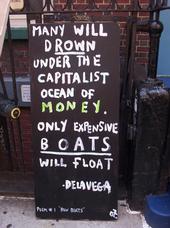 MANY WILL
DROWN
UNDER THE
CAPITALIST
OCEAN OF
MONEY.
ONLY EXPENSIVE
BOATS
WILL FLOAT
-DELAVEGA
POEM #1 "NEW BOATS"